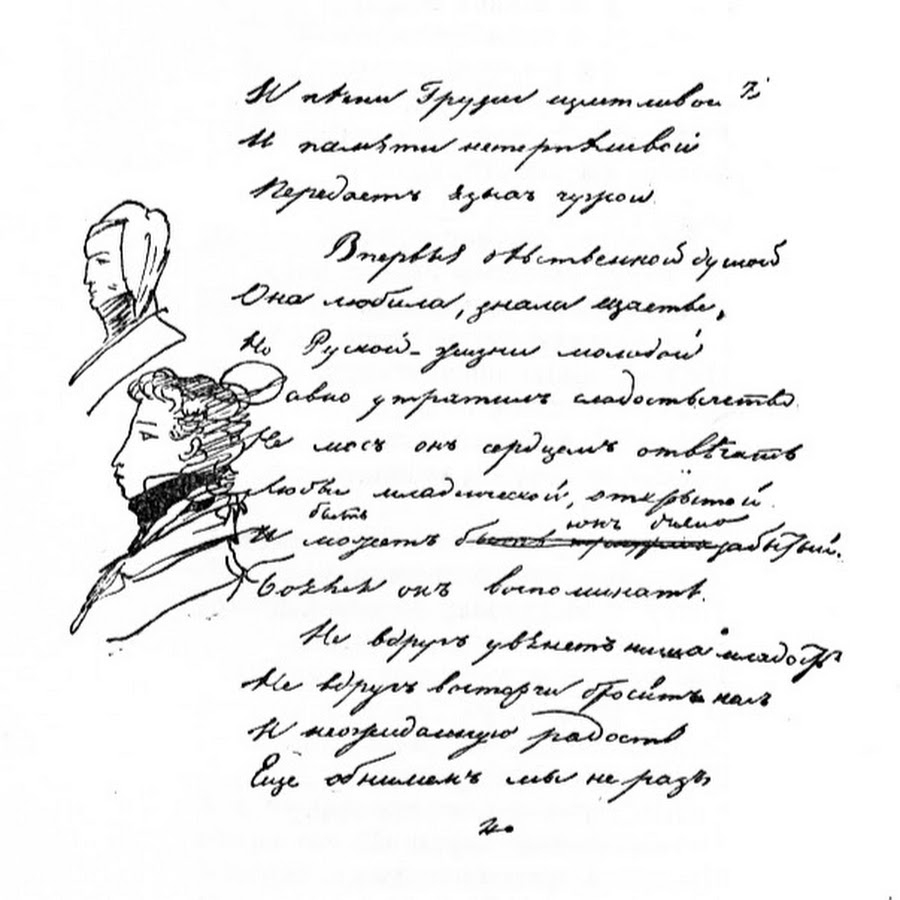 И пѣсни Грузіи щастливой 7)
И памяти нетерпѣливой
Передаетъ языкъ чужой.
Впервыя дѣвственной душой
Она любила, знала щастье,
Но Руской жизни молодой
Давно утратилъ сладострастье.
Не могъ онъ сердцемъ отвѣчать
Любви младенческой, открытой.
быть
И можетъ быть забытый.
Боялся онъ воспоминать.
Не вдругъ увянетъ наша младость
Не вдругъ восторги бросятъ насъ
И неожиданную радость
Еще обнимемъ мы не разъ